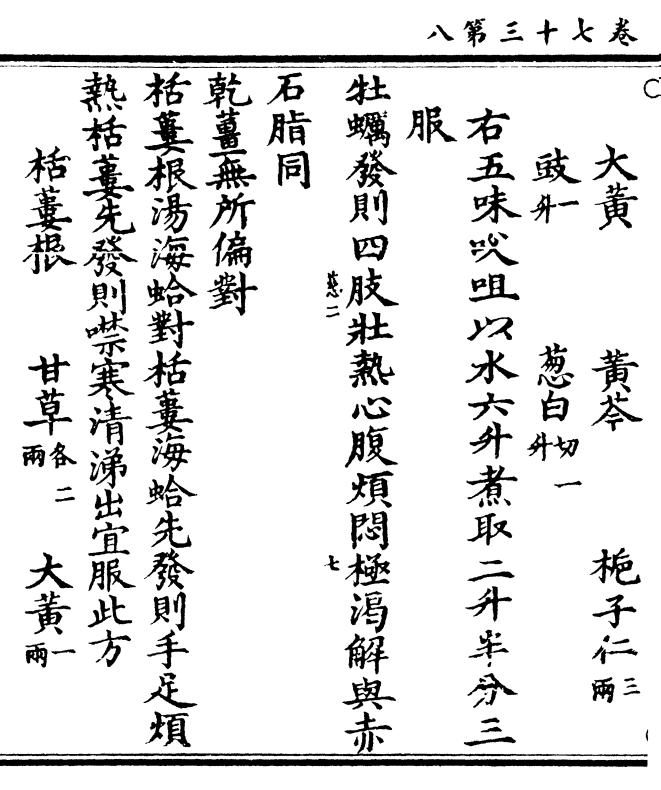 卷七十三第八
大黃　黃芩　梔子仁三兩
豉一升　葱白切一升
右五味㕮咀以水六升煮取二升半分三
服
牡蠣發則四肢壯熱心腹煩悶極渴解與赤
葱二
七
石脂同
乾薑無所偏對
栝蔞根湯海蛤對栝蔞海蛤先發則手足煩
熱栝蔞先發則噤寒清涕出宜服此方
栝蔞根　甘草各二兩　大黃一兩